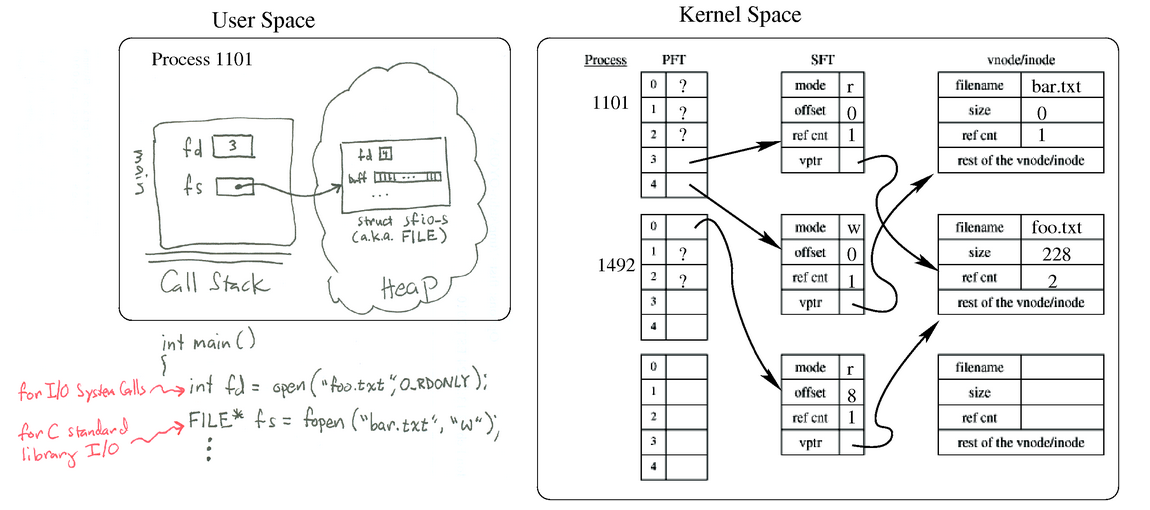 User Space
Process 1101
main
fd 3
fs
Call Stack
fd 4
buff ...
...
struct sfio-s
(a.k.a. FILE)
Heap
int main()
{
for I/O System Calls int fd = open("foo.txt", O_RDONLY);
for C standard library I/O FILE* fs = fopen("bar.txt", "w");
Kernel Space
Process PFT SFT vnode/inode
1101
0 ?
1 ?
2 ?
3
4
1492
0
1 ?
2 ?
3
4
0
1
2
3
4
mode r
offset 0
ref cnt 1
vptr
mode w
offset 0
ref cnt 1
vptr
mode r
offset 8
ref cnt 1
vptr
filename bar.txt
size 0
ref cnt 1
rest of the vnode/inode
filename foo.txt
size 228
ref cnt 2
rest of the vnode/inode
filename
size
ref cnt
rest of the vnode/inode